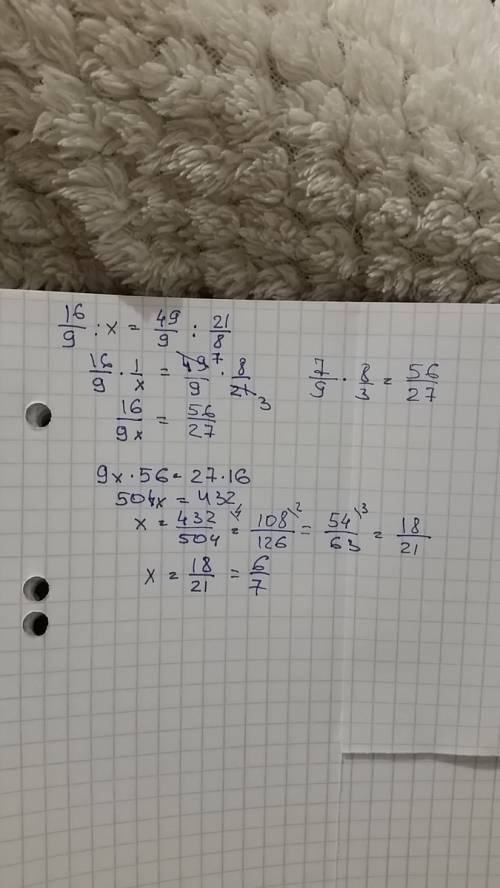 16/9 : x = 49/9 : 21/8
16/9 · 1/x = 49/9 7 · 8/21 3
7/9 · 8/3 = 56/27
16/9x = 56/27
9x · 56 = 27 · 16
504x = 432
x = 432/504 \4 = 108/126 \2 = 54/63 \3 = 18/21
x = 18/21 = 6/7